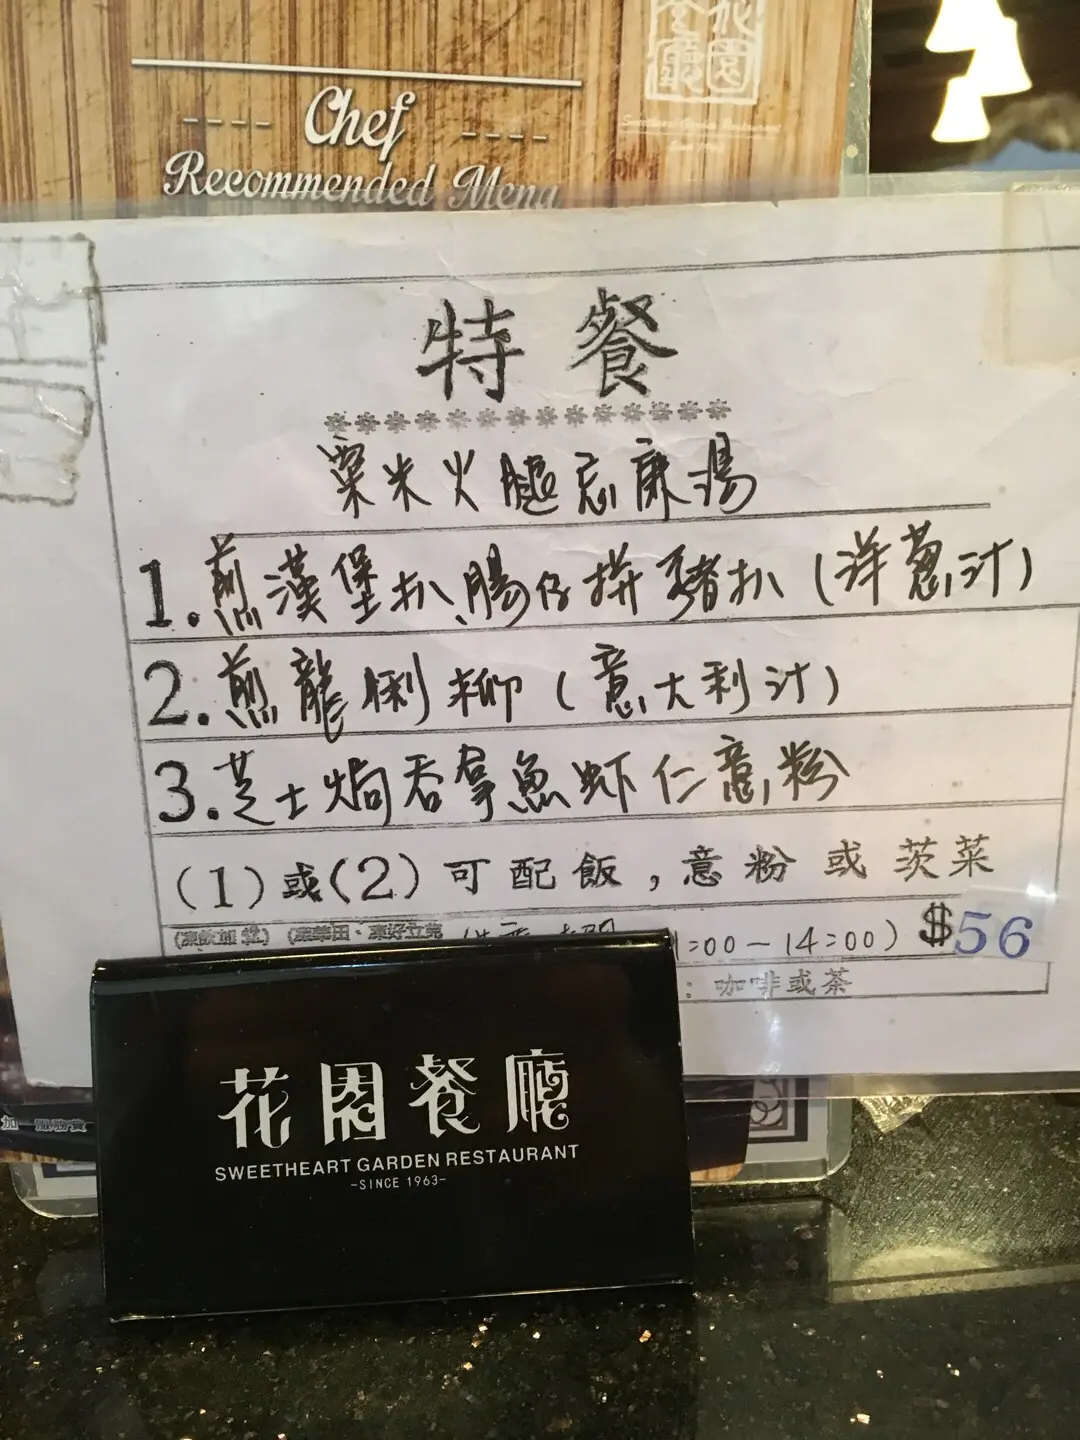 Chef
Recommended Menu
特餐
粟米火腿忌廉湯
1.煎漢堡扒腸仔拼豬扒(洋蔥汁)
2.煎龍脷柳(意大利汁)
3.芝士焗吞拿魚蝦仁意粉
(1)或(2)可配飯,意粉或茨菜
1:00-14:00) $56
: 咖啡或茶
花園餐廳
SWEETHEART GARDEN RESTAURANT
-SINCE 1963-